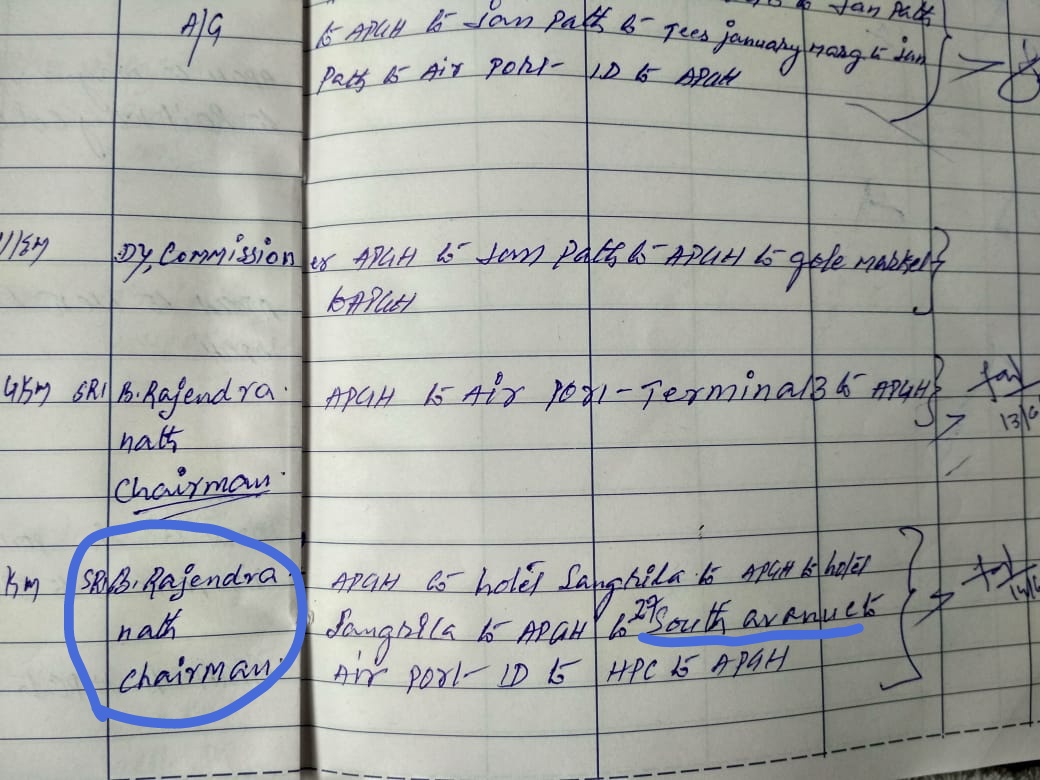 to Jan Path
A/G
to APGH to Jan Path to Tees january marg to Jan
Path to Air Port- ID to APGH
Dy, Commissioner APGH to Jan Path to APGH to gole market
to APGH
Km SRI B. Rajendra APGH to Air Port-Terminal 3 to APGH
nath
Chairman
Km SRI B. Rajendra APGH to hotel Sangrila to APGH to hotel
nath Sangrila to APGH to 27 South avenue to
Chairman Air Port- ID to HPC to APGH